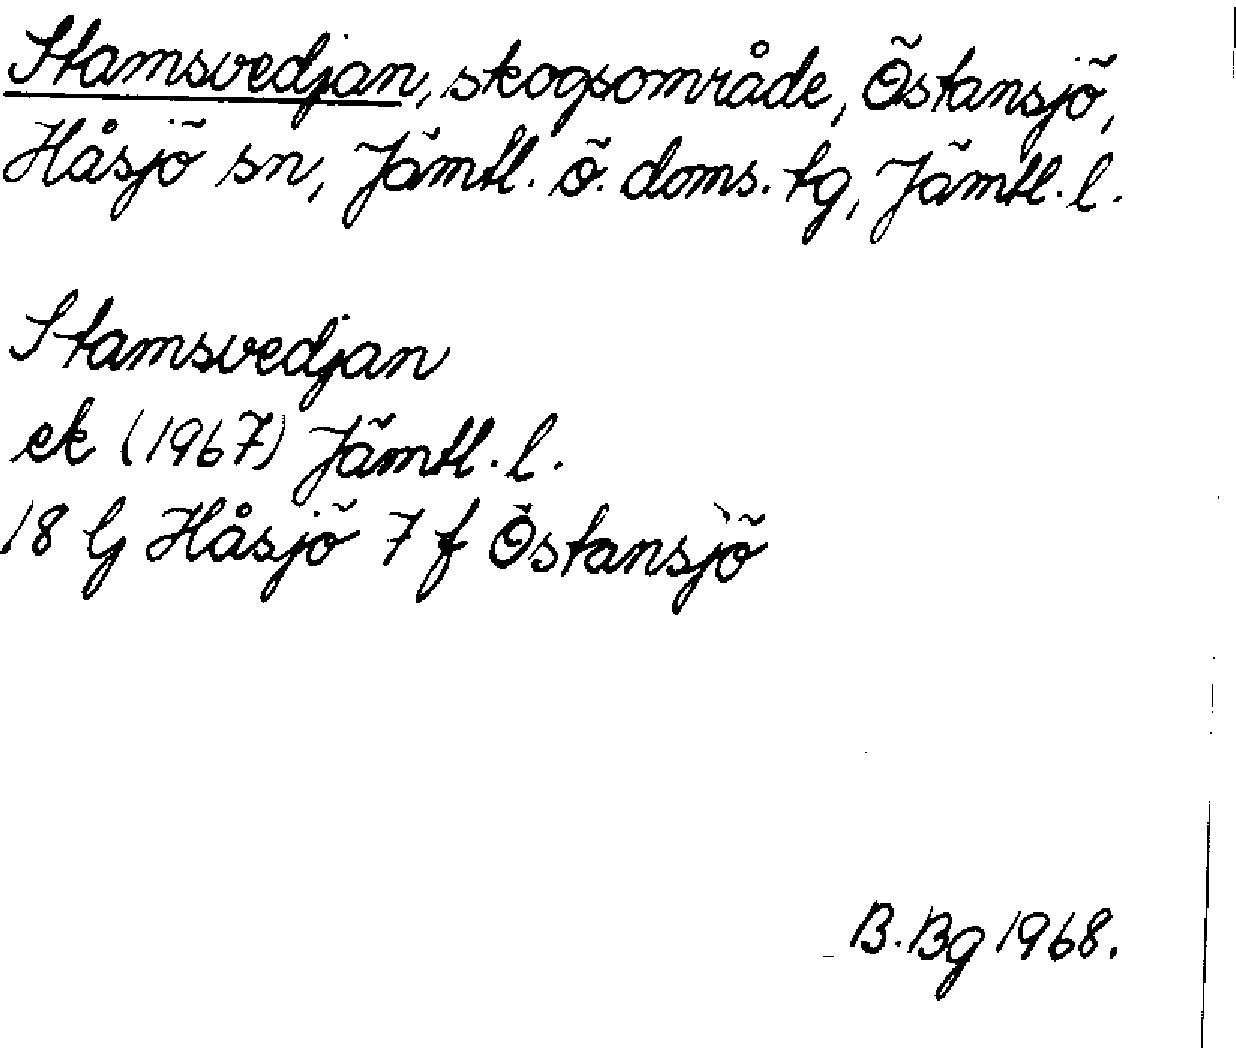 Stamsvedjan, skogsområde, Östansjö,
Håsjö sn, Jämtl. ö. doms. tg, Jämtl. l.
Stamsvedjan
ek (1967) Jämtl. l.
18 G Håsjö 7 f Östansjö
B. Bg 1968.